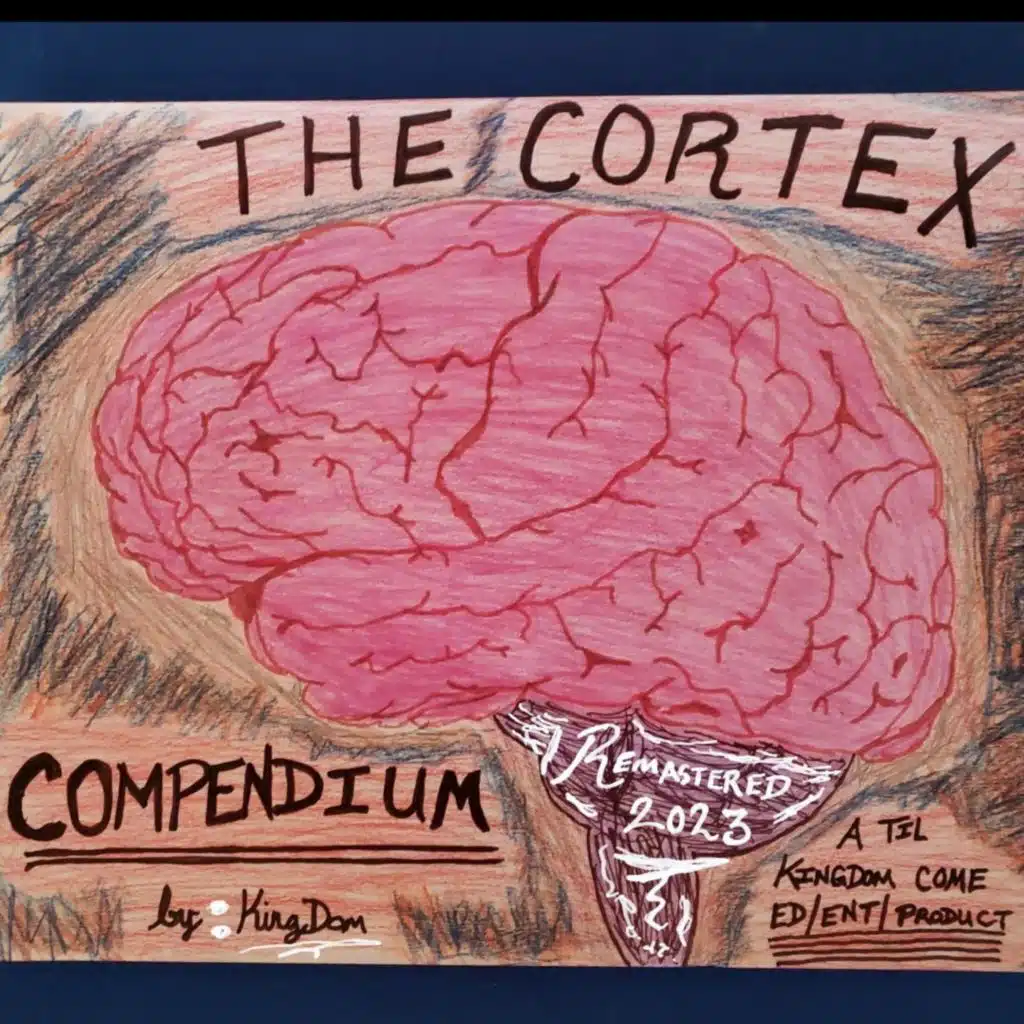 THE CORTEX
COMPENDIUM
by: KingDom
REMASTERED
2023
A TIL
KINGDOM COME
ED/ENT/PRODUCT